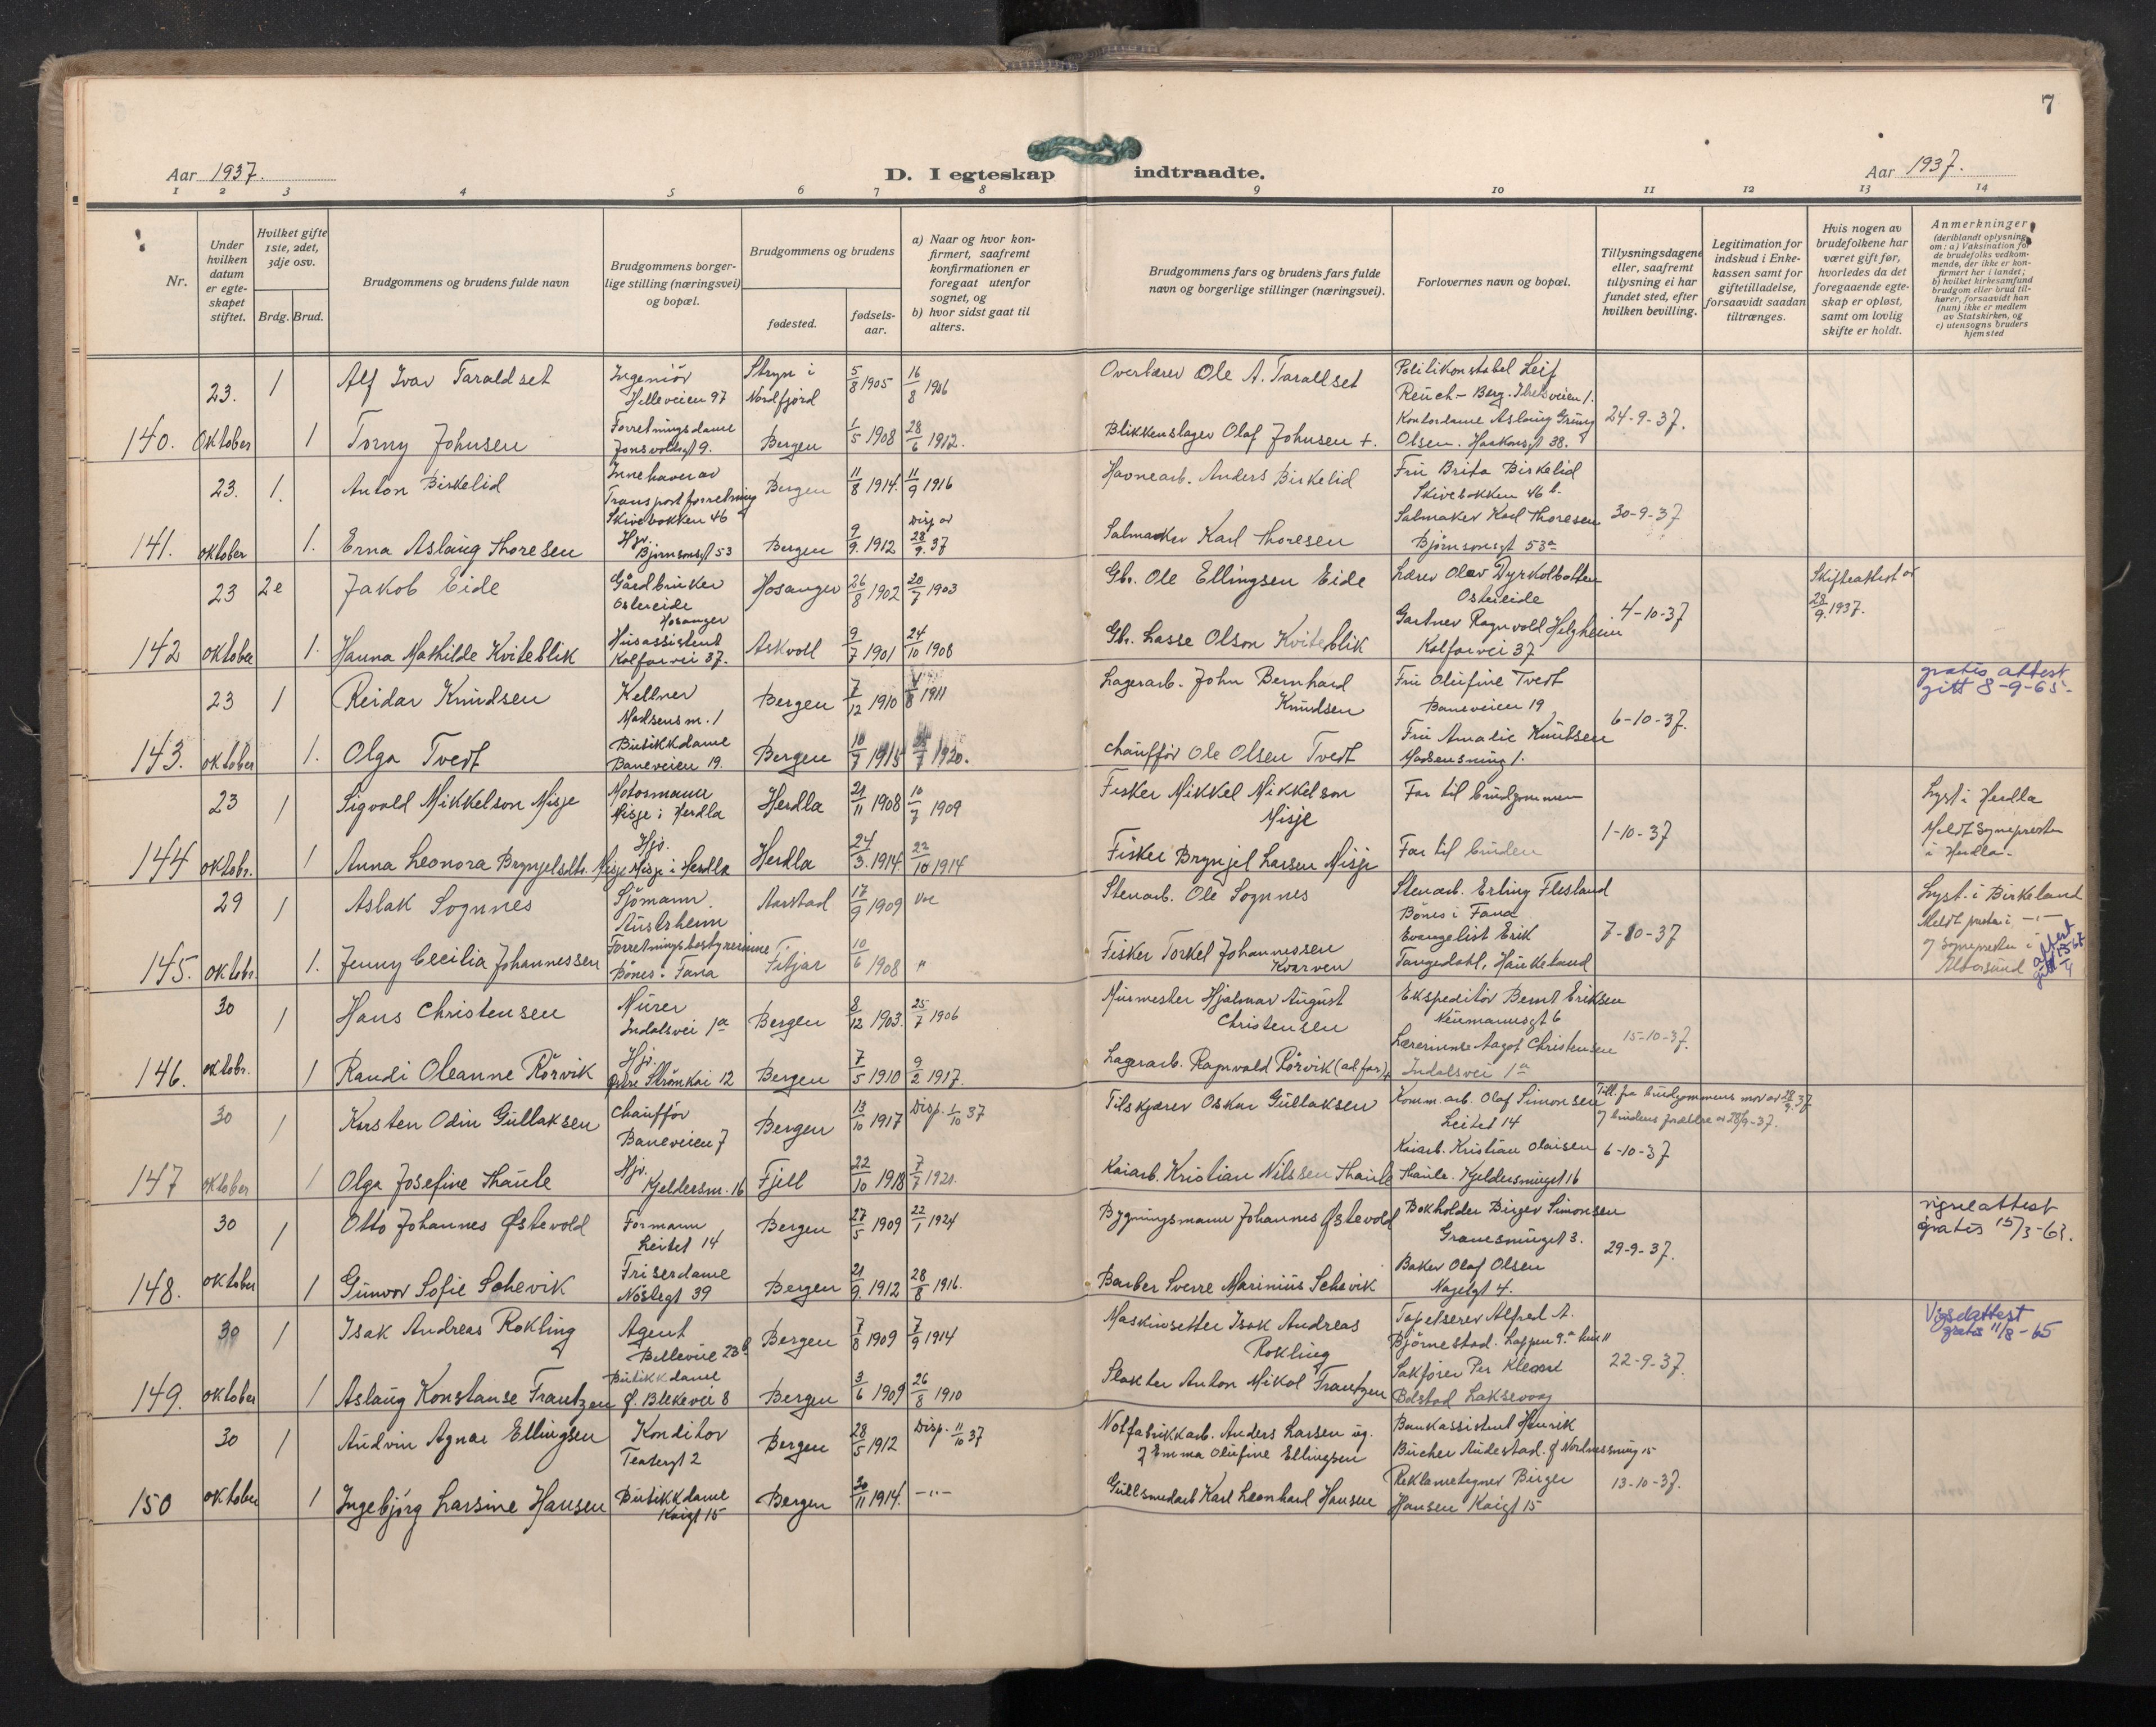 7
Aar 1937.
D. I egteskap indtraadte.
Aar 1937.
1 2 3 4 5 6 7 8 9 10 11 12 13 14
Nr.
Under hvilken datum er egteskapet stiftet.
Hvilket gifte 1ste, 2det, 3dje osv.
Brdg. Brud.
Brudgommens og brudens fulde navn
Brudgommens borgerlige stilling (næringsvei) og bopæl.
Brudgommens og brudens
fødested.
fødselsaar.
a) Naar og hvor konfirmert, saafremt konfirmationen er foregaat utenfor sognet, og
b) hvor sidst gaat til alters.
Brudgommens fars og brudens fars fulde navn og borgerlige stillinger (næringsvei).
Forlovernes navn og bopæl.
Tillysningsdagene eller, saafremt tillysning ei har fundet sted, efter hvilken bevilling.
Legitimation for indskud i Enkekassen samt for giftetilladelse, forsaavidt saadan tiltrænges.
Hvis nogen av brudefolkene har været gift før, hvorledes da det foregaaende egteskap er opløst, samt om lovlig skifte er holdt.
Anmerkninger (deriblandt oplysning om: a) Vaksination for de brudefolks vedkommende, der ikke er konfirmert her i landet; b) hvilket kirkesamfund brudgom eller brud tilhører, forsaavidt han (hun) ikke er medlem av Statskirken, og c) utensogns bruders hjemsted
23. 1 Alf Ivar Taraldset Ingeniør Helleveien 97 Stryn i Nordfjord 5/8 1905 16/8 1906 Overlærer Ole A. Taraldset Politikonstabel Leif Reuch-Berg. Ibretsveien 1.
140. Oktober 1 Torny Johnsen Forretningsdame Jonsvollsgt 9. Bergen 1/5 1908 28/6 1912. Blikkenslager Olaf Johnsen +. Kontordame Aslaug Grung Olsen. Haakonsgt 38. 24-9-37.
23. 1. Anton Birkelid Innehaver av Transportforretning Skivebakken 46 Bergen 11/8 1914. 11/9 1916 Havnearb. Anders Birkelid Fru Brita Birkelid Skivebakken 46 b.
141. oktober 1. Erna Aslaug Thoresen Hjv. Bjørnsonsgt 53 Bergen 9/9. 1912 Disp av 28/9. 37 Salmaker Karl Thoresen Salmaker Karl Thoresen Bjørnsonsgt 53a 30-9-37
23 2e Jakob Eide Gårdbruker Ostereide Hosanger Hosanger 26/8 1902 20/7 1903 Gbr. Ole Ellingsen Eide Lærer Olav Dyrkolbotten Ostereide Skifteattest av 28/9. 1937.
142 oktober 1. Hanna Mathilde Kviteblik Husassistent Kalfarvei 37. Askvoll 9/7 1901 24/10 1908 Gbr. Lasse Olson Kviteblik Gartner Ragnvald Helgheim Kalfarvei 37 4-10-37
23 1 Reidar Knudsen Kellner Madsensm. 1 Bergen 7/12 1910 1911 Lagerarb. John Bernhard Knudsen Fru Olufine Tvedt Baneveien 19 gratis attest gitt 8-9-65.
143. oktober 1. Olga Tvedt Butikkdame Baneveien 19. Bergen 10/7 1915 1920. chauffør Ole Olsen Tvedt Fru Amalie Knudsen Madsensmug 1. 6-10-37.
23 1 Sigvald Mikkelson Misje Motormann Misje i Herdla Herdla 21/11 1908 10/7 1909 Fisker Mikkel Mikkelson Misje Far til brudgommen Lyst i Herdla Meldt sognepresten i Herdla.
144 oktobr. 1 Anna Leonora Brynjelsdtr. Misje Hjv. Misje i Herdla Herdla 24/3. 1914. 22/10 1914 Fisker Brynjel Larsen Misje Far til bruden 1-10-37
29 1 Aslak Sognnes Sjømann. Austrheim Aarstad 17/9 1909 Stenarb. Ole Sognnes Stenarb. Erling Flesland Bönes i Fana Lyst. i Birkeland
145. oktobr. 1. Jenny Cecilia Johannessen Forretningsbestyrerinne Bönes. Fana Fitjar 10/6 1908 " Fisker Torkel Johannessen Kvarven Evangelist Erik Tangedahl, Haukeland 7-10-37
30 1 Hans Christensen Murer Indalsvei 1a Bergen 8/12 1903. 25/7 1906 Murmester Hjalmar August Christensen Ekspeditør Bernt Eriksen Neumannsgt 6
146. oktobr. 1 Randi Oleanne Rörvik Hjv. Østre Strömkai 12 Bergen 7/5 1910 9/2 1917. Lagerarb. Ragnvald Rörvik (ad.far) + Lærerinne Aagot Christensen Indalsvei 1a 15-10-37.
30 1 Karsten Odin Gullaksen chauffør Baneveien 7 Bergen 13/10 1917 Disp. 1/10 37 Tilskjærer Oskar Gullaksen Komm.arb. Olaf Simonsen Leitet 14 Till. fra brudgommens mor av 28/9. 37 og brudens foreldre av 28/9-37.
147 oktober 1 Olga Josefine Thaule Hjv. Kjeldersm. 16 Fjell 22/10 1918 7/7 1921. Kaiarb. Kristian Nilssen Thaule Kaiarb. Kristian Olaisen Thaule. Kjeldersmuget 16 6-10-37
30 1 Otto Johannes Østevold Formann Leitet 14 Bergen 27/5 1909 22/1 1924 Bygningsmann Johannes Østevold Bokholder Birger Simonsen Granesmuget 3. vigselattest gratis 15/3-63.
148. oktober 1 Gunvor Sofie Schevik Friserdame Nöstegt 39 Bergen 21/9. 1912 28/8 1916. Barber Sverre Marinius Schevik Baker Olaf Olsen Nagelgt 4. 29-9-37.
30 1 Isak Andreas Rokling Agent Bellevue 23b Bergen 7/8 1909 7/9 1914 Maskinsetter Isak Andreas Rokling Tapetserer Alfred A. Bjørnestad. Lappen 9.a hus 11 Vigselattest gratis 11/8-65
149. oktober 1 Aslaug Konstanse Frantzen Butikkdame Ø. Blekevei 8 Bergen 3/6 1909 26/8 1910 Slakter Anton Mikal Frantzen Sakfører Per Bolstad Laksevaag 22-9-37.
30 1 Audvin Agnar Ellingsen Konditor Teatergt 2 Bergen 28/5 1912 Disp. 11/10 37 Notfabrikkarb. Anders Larsen ug. og Emma Olufine Ellingsen Bankassistent Henrik Bucher Audestad. Ø Nordnessmug 15
150 oktober 1 Ingebjörg Larsine Hansen Butikkdame Kaigt 15 Bergen 30/11 1914. -"- Gullsmedarb Karl Leonhard Hansen Reklametegner Birger Hansen Kaigt 15 13-10-37.